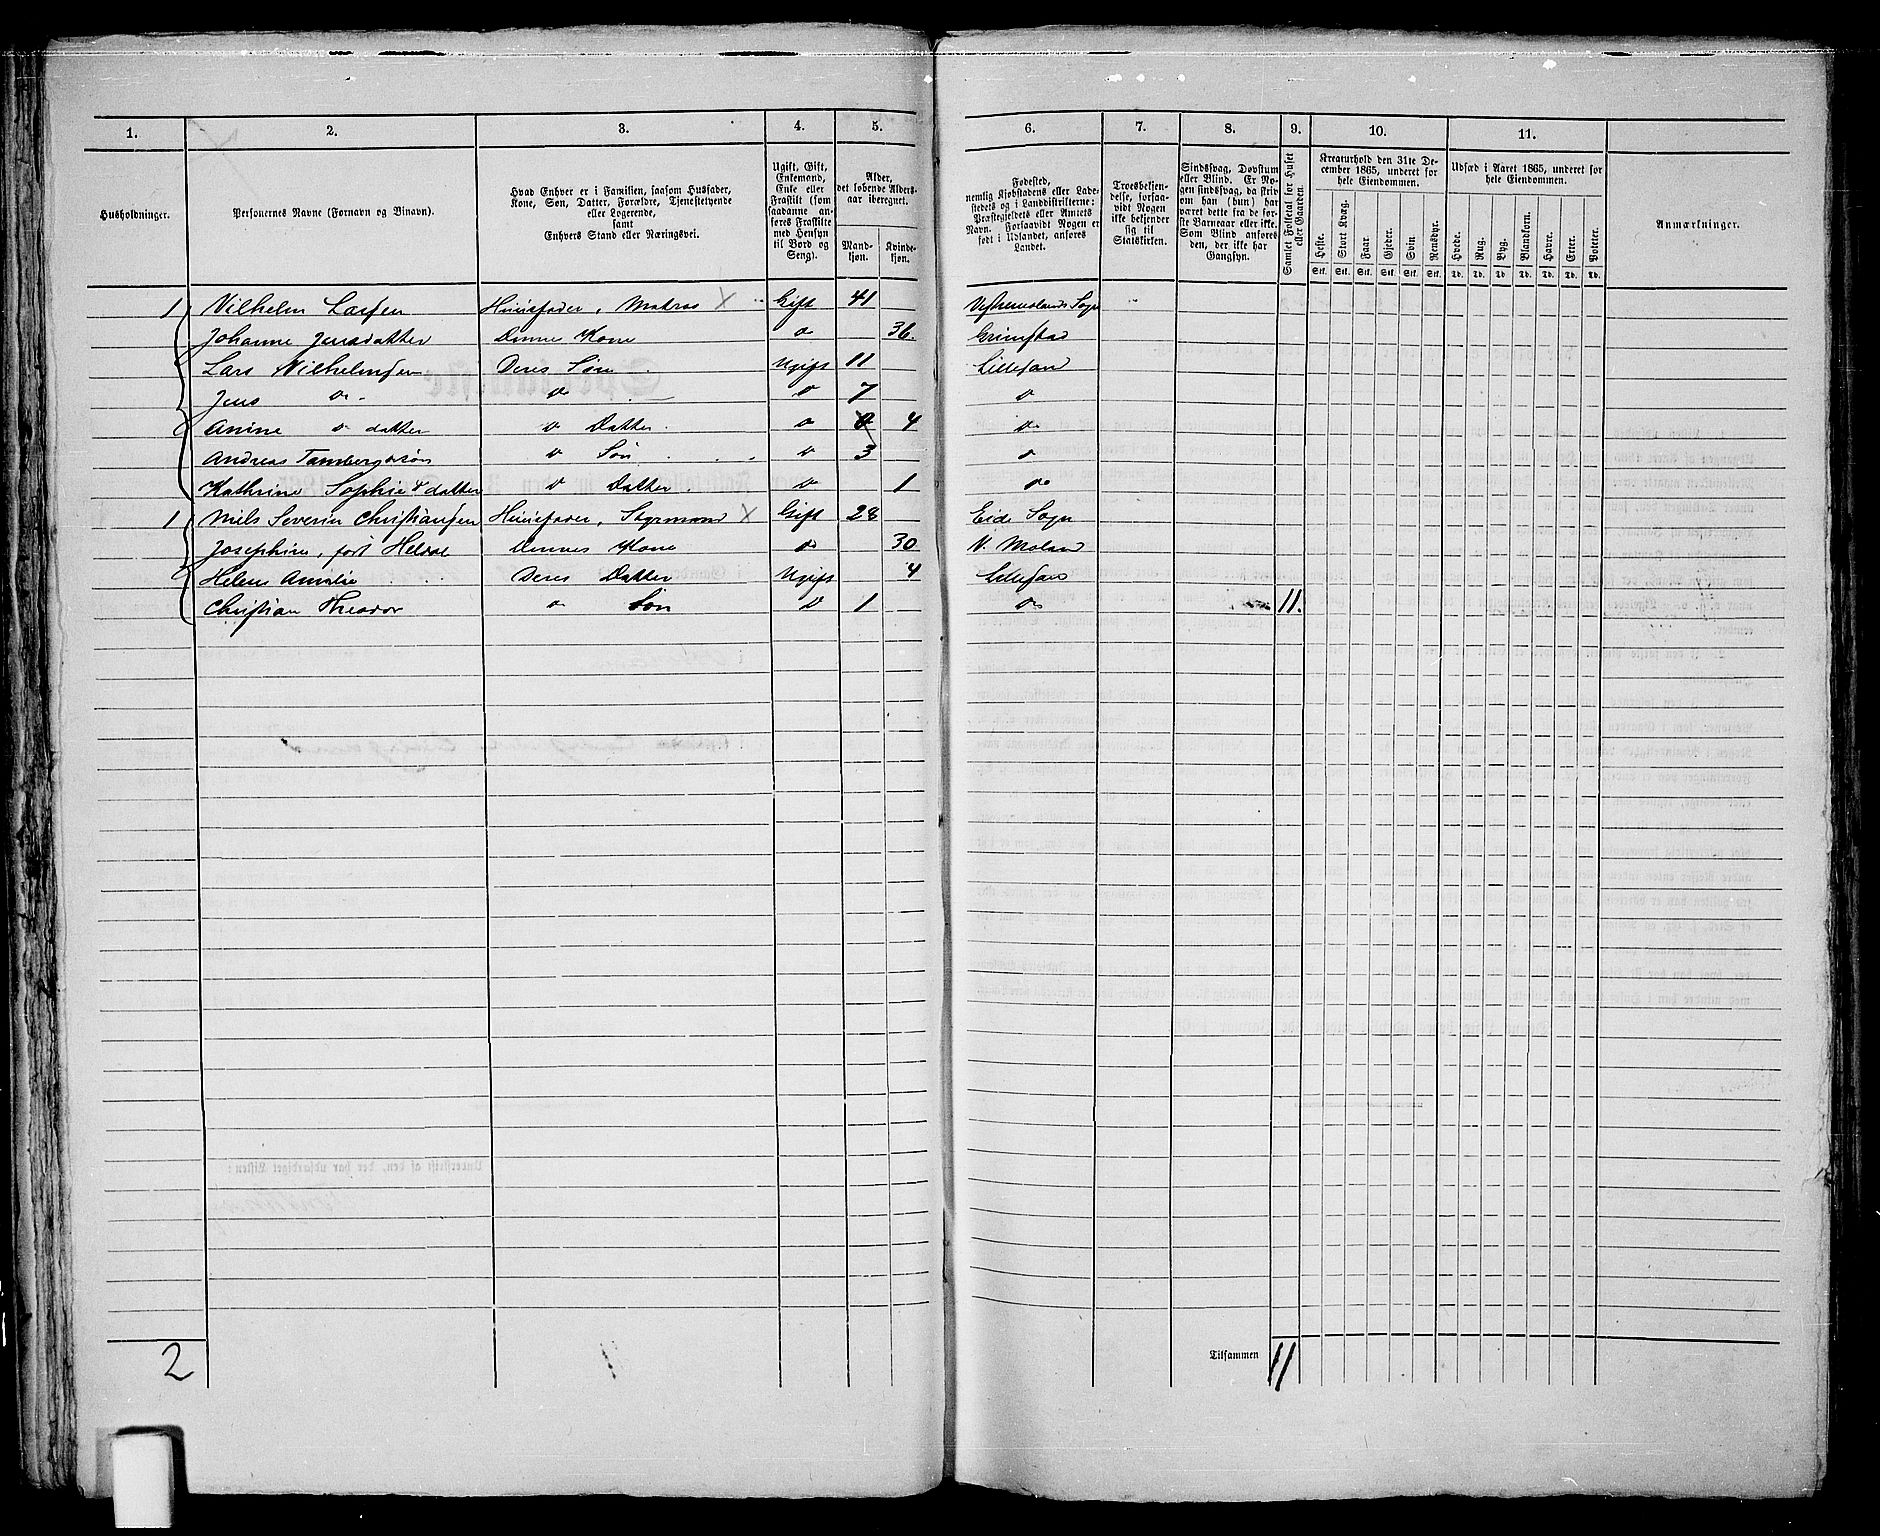 1. 2. 3. 4. 5. 6. 7. 8. 9. 10. 11.
Husholdninger.
Personernes Navne (Fornavn og Binavn).
Hvad Enhver er i Familien, saasom Husfader,
Kone, Søn, Datter, Forældre, Tjenestetyende
eller Logerende,
samt
Enhvers Stand eller Næringsvei.
Ugift, Gift,
Enkemand,
Enke eller
Fraskilt (som
saadanne an-
føres Fraskilte
med Hensyn
til Bord og
Seng).
Alder,
det løbende Alders-
aar iberegnet.
Mand-
kjøn.
Kvinde-
kjøn.
Fødested,
nemlig Kjøbstadens eller Lade-
stedets og i Landdistrikterne:
Præstegjeldets eller Amtets
Navn. Forsaavidt Nogen er
født i Udlandet, anføres
Landet.
Troesbekjen-
delse, forsaa-
vidt Nogen
ikke bekjender
sig til
Statskirken.
Sindssvag, Døvstum
eller Blind. Er No-
gen sindssvag, da skriv
om han (hun) har
været dette fra de før-
ste Barneaar eller ikke.
Som Blind anføres
den, der ikke har
Gangsyn.
Samlet Folketal for Huset
eller Gaarden.
Kreaturhold den 31te De-
cember 1865, underet for
hele Eiendommen.
Heste. Stort Kvæg. Faar. Gjeder. Svin. Rensdyr.
Stk. Stk. Stk. Stk. Stk. Stk.
Udsæd i Aaret 1865, underet for
hele Eiendommen.
Hvede. Rug. Byg. Blandkorn. Havre. Erter. Poteter.
Td. Td. Td. Td. Td. Td. Td.
Anmærkninger.
1 Vilhelm Larsen Huusfader, Matros X Gift 41 Vestremolands Sogn
Johanne Jensdatter Dennes Kone do 36. Grimstad
Lars Vilhelmsen Deres Søn Ugift 11 Lillesand
Jens do do do 7 do
Anine do datter do Datter do 4 do
Andreas Tambergdo søn do Søn do 3 do
Kathrine Sophie do datter do Datter do 1 do
1 Niels Severin Christiansen Huusfader, Styrmand X Gift 28 Eide Sogn
Josephine, født Dennes Kone do 30 V. Moland
Helene Amalie Deres Datter Ugift 4 Lillesand
Christian Theodor do Søn do 1 do 11.
2 Tilsammen 11